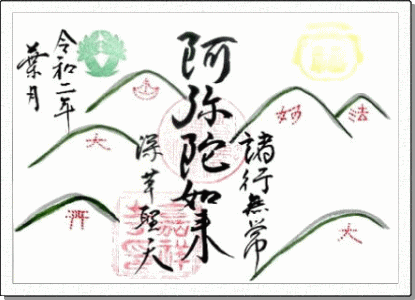 法
妙
大
諸行無常
阿弥陀如来
深草聖天
大
令和二年
葉月